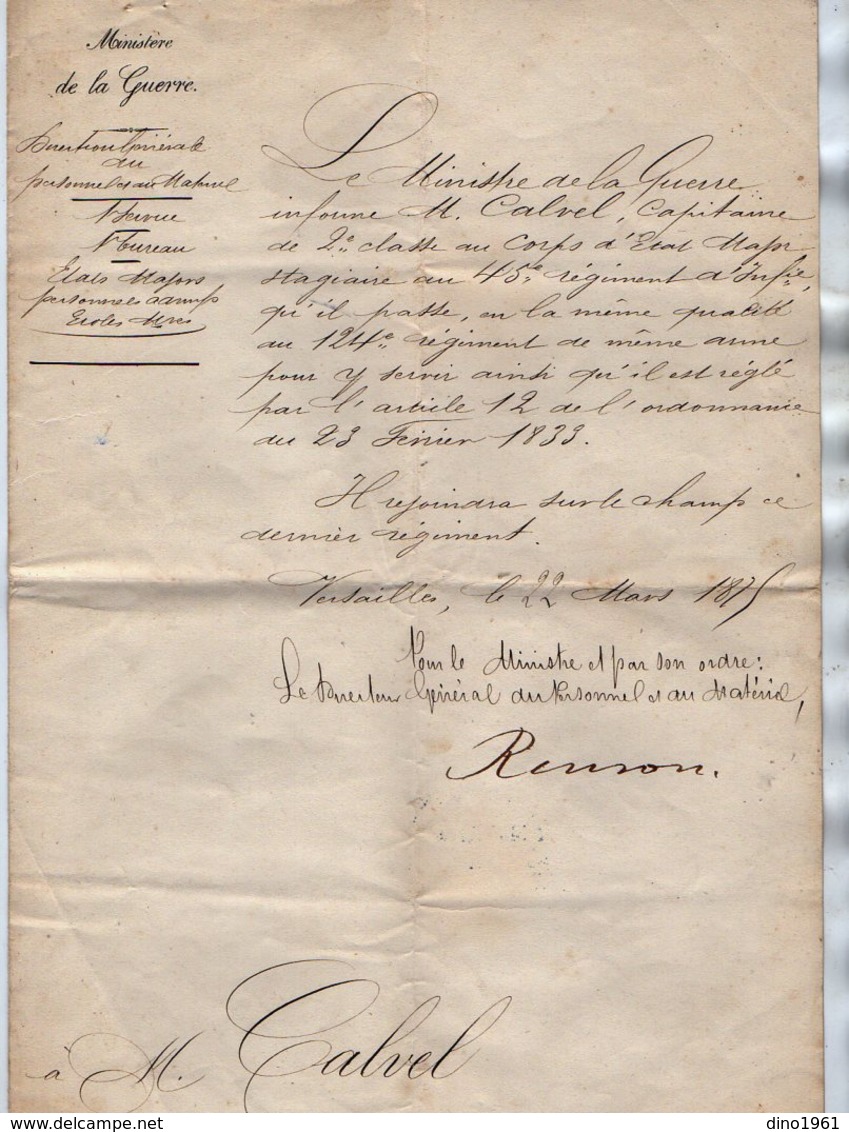 Ministère
de la Guerre.
Direction Générale
du
personnel et du Matériel
1er Service
1er Bureau
Etats Majors
personnels
Ecoles Mres
Le Ministre de la Guerre
informe M. Calvel, Capitaine
de 2e classe au Corps d'Etat Major
stagiaire au 45e régiment d'Infie,
qu'il passe, en la même qualité
au 124e régiment de même arme
pour y servir ainsi qu'il est réglé
par l'article 12 de l'ordonnance
du 23 Février 1833.
Il rejoindra sur le champ ce
dernier régiment.
Versailles, le 22 Mars 1875
Pour le Ministre et par son ordre:
Le Directeur Général du Personnel et du Matériel,
Renson.
à M. Calvel
delcampe.net
dino1961